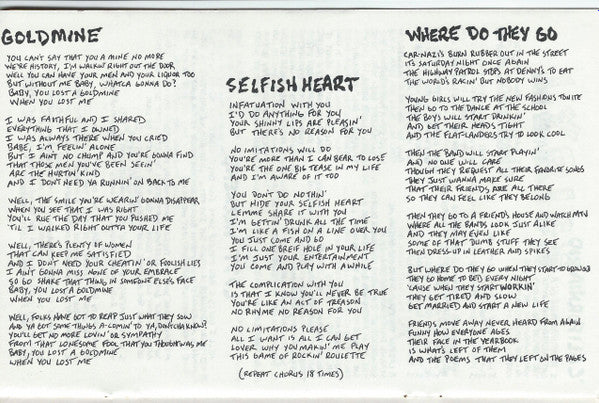 GOLDMINE
YOU CAN'T SAY THAT YOU A MINE NO MORE
WE'RE HISTORY, I'M WALKIN' RIGHT OUT THE DOOR
WELL YOU CAN HAVE YOUR MEN AND YOUR LIQUOR TOO
BUT WITHOUT ME BABY, WHATCA GONNA DO?
BABY, YOU LOST A GOLDMINE
WHEN YOU LOST ME
I WAS FAITHFUL AND I SHARED
EVERYTHING THAT I OWNED
I WAS ALWAYS THERE WHEN YOU CRIED
BABE, I'M FEELIN' ALONE
BUT I AIN'T NO CHUMP AND YOU'RE GONNA FIND
THAT THOSE MEN YOU'VE BEEN SEEIN'
ARE THE HURTIN' KIND
AND I DON'T NEED YA RUNNIN' ON BACK TO ME
WELL, THE SMILE YOU'RE WEARIN' GONNA DISAPPEAR
WHEN YOU SEE THAT I WAS RIGHT
YOU'LL RUE THE DAY THAT YOU PUSHED ME
'TIL I WALKED RIGHT OUTTA YOUR LIFE
WELL, THERE'S PLENTY OF WOMEN
THAT CAN KEEP ME SATISFIED
AND I DON'T NEED YOUR CHEATIN' OR FOOLISH LIES
I AIN'T GONNA MISS NONE OF YOUR EMBRACE
SO GO SHAKE THAT THING IN SOMEONE ELSE'S FACE
BABY, YOU LOST A GOLDMINE
WHEN YOU LOST ME
WELL, FOLKS HAVE GOT TO REAP JUST WHAT THEY SOW
AND YA GOT SOME THINGS A-COMIN' TO YA, DONTCHA KNOW?
YOU'LL GET NO MORE LOVIN' OR SYMPATHY
FROM THAT LONESOME FOOL THAT YOU THOUGHT WAS ME
BABY, YOU LOST A GOLDMINE
WHEN YOU LOST ME
SELFISH HEART
INFATUATION WITH YOU
I'D DO ANYTHING FOR YOU
YOUR SHINNY LIPS ARE PLEASIN'
BUT THERE'S NO REASON FOR YOU
NO IMITATIONS WILL DO
YOU'RE MORE THAN I CAN BEAR TO LOSE
YOU'RE THE ONE BIG TEASE IN MY LIFE
AND I'M AWARE OF IT TOO
YOU DON'T DO NOTHIN'
BUT HIDE YOUR SELFISH HEART
LEMME SHARE IT WITH YOU
I'M GETTIN' DRUNK ALL THE TIME
I'M LIKE A FISH ON A LINE OVER YOU
YOU JUST COME AND GO
I FILL ONE BREIF HOLE IN YOUR LIFE
I'M JUST YOUR ENTERTAINMENT
YOU COME AND PLAY WITH AWHILE
THE COMPLICATION WITH YOU
IS THAT I KNOW YOU'LL NEVER BE TRUE
YOU'RE LIKE AN ACT OF TREASON
NO RHYME NO REASON FOR YOU
NO LIMITATIONS PLEASE
ALL I WANT IS ALL I CAN GET
LOVER WHY YOU MAKIN' ME PLAY
THIS GAME OF ROCKIN' ROULETTE
(REPEAT CHORUS 18 TIMES)
WHERE DO THEY GO
CAR-NAZI'S BURN RUBBER OUT IN THE STREET
IT'S SATURDAY NIGHT ONCE AGAIN
THE HIGHWAY PATROL STOPS AT DENNY'S TO EAT
THE WORLD'S RACIN' BUT NOBODY WINS
YOUNG GIRLS WILL TRY THE NEW FASHIONS TONITE
THEN GO TO THE DANCE AT THE SCHOOL
THE BOYS WILL START DRINKIN'
AND GET THEIR HEADS TIGHT
AND THE FLATLANDERS TRY TO LOOK COOL
THEN THE BAND WILL START PLAYIN'
AND NO ONE WILL CARE
THOUGH THEY REQUEST ALL THEIR FAVORITE SONGS
THEY JUST WANNA MAKE SURE
THAT THEIR FRIENDS ARE ALL THERE
SO THEY CAN FEEL LIKE THEY BELONG
THEN THEY GO TO A FRIEND'S HOUSE AND WATCH MTV
WHERE ALL THE BANDS LOOK JUST ALIKE
AND THEY MAY EVEN LIKE
SOME OF THAT DUMB STUFF THEY SEE
THEN DRESS-UP IN LEATHER AND SPIKES
BUT WHERE DO THEY GO WHEN THEY START TO GROW OLD
THEY GO HOME TO BED EVERY NIGHT
'CAUSE WHEN THEY START WORKIN'
THEY GET TIRED AND SLOW
GET MARRIED AND START A NEW LIFE
FRIENDS MOVE AWAY NEVER HEARD FROM AGAIN
FUNNY HOW EVERYONE AGES
THEIR FACE IN THE YEARBOOK
IS WHAT'S LEFT OF THEM
AND THE POEMS THAT THEY LEFT ON THE PAGES